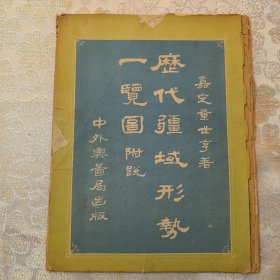 嘉定童世亨著
歷代疆域形勢
一覽圖附說
中外輿圖局出版